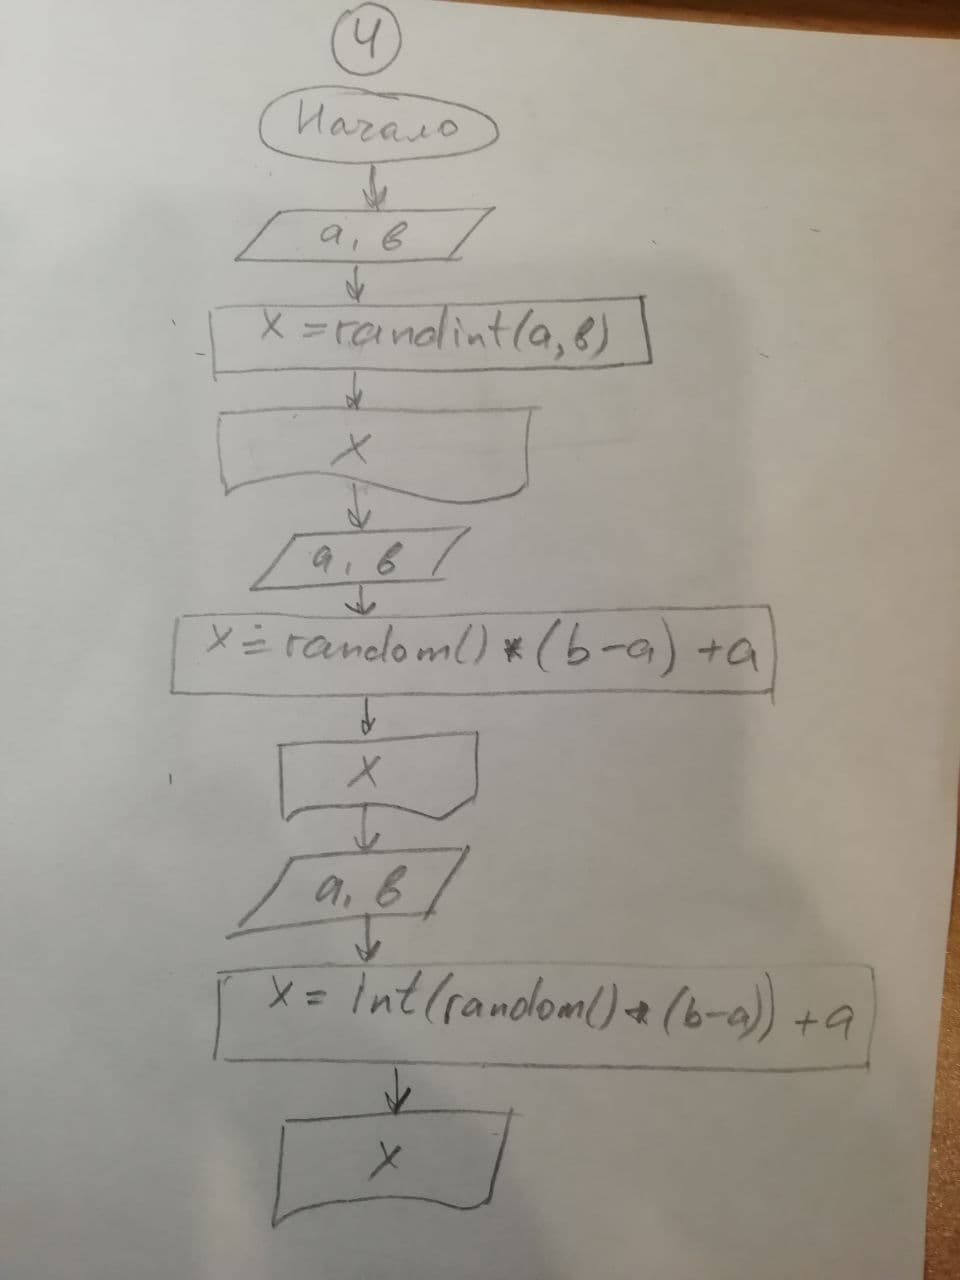 4
Начало
а, в
x = randint(a, в)
x
а, в
x = random() * (b-a) + a
x
а, в
x = int(random() * (b-a)) + a
x